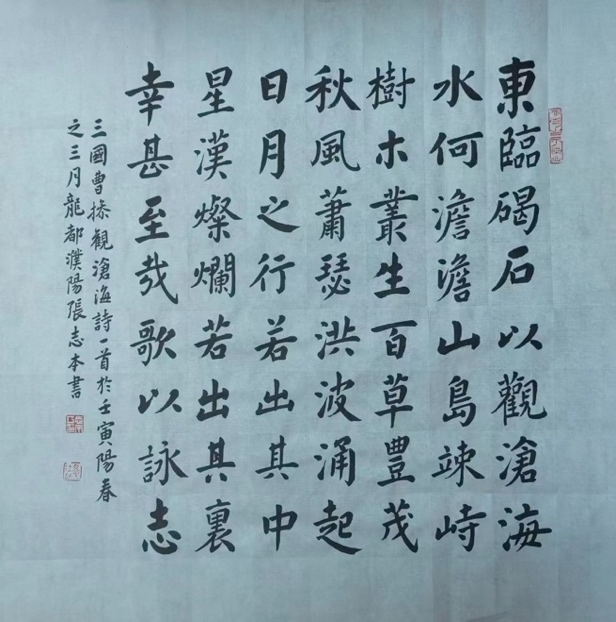 東臨碣石以觀滄海
水何澹澹山島竦峙
樹木叢生百草豐茂
秋風蕭瑟洪波涌起
日月之行若出其中
星漢燦爛若出其裏
幸甚至哉歌以詠志
三國曹操觀滄海詩一首於壬寅陽春
之三月龍都濮陽張志本書